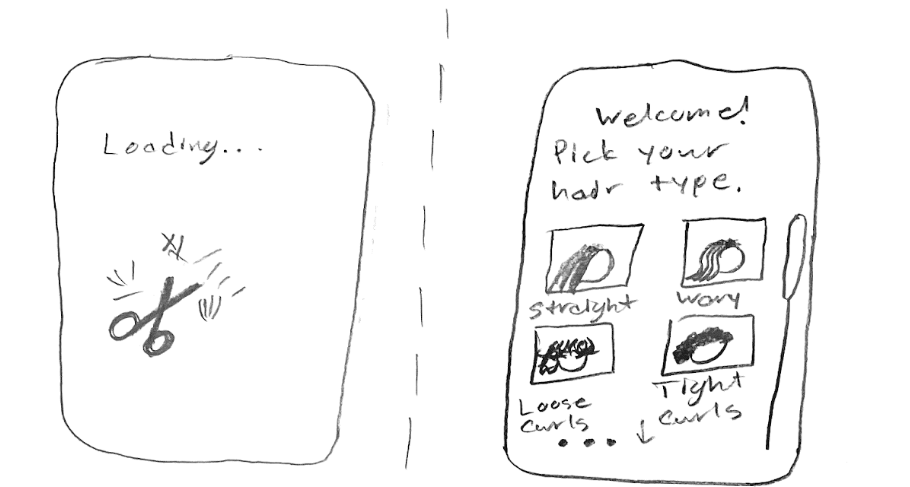 Loading...
Welcome!
Pick your
hair type.
Straight
Wavy
Loose
Curls
Tight
Curls
...